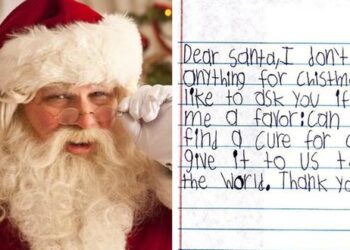 Dear Santa, I don't
anything for Chistma
like to ask you if
me a favor: can
find a cure for c
give it to us t
the World. Thank yo